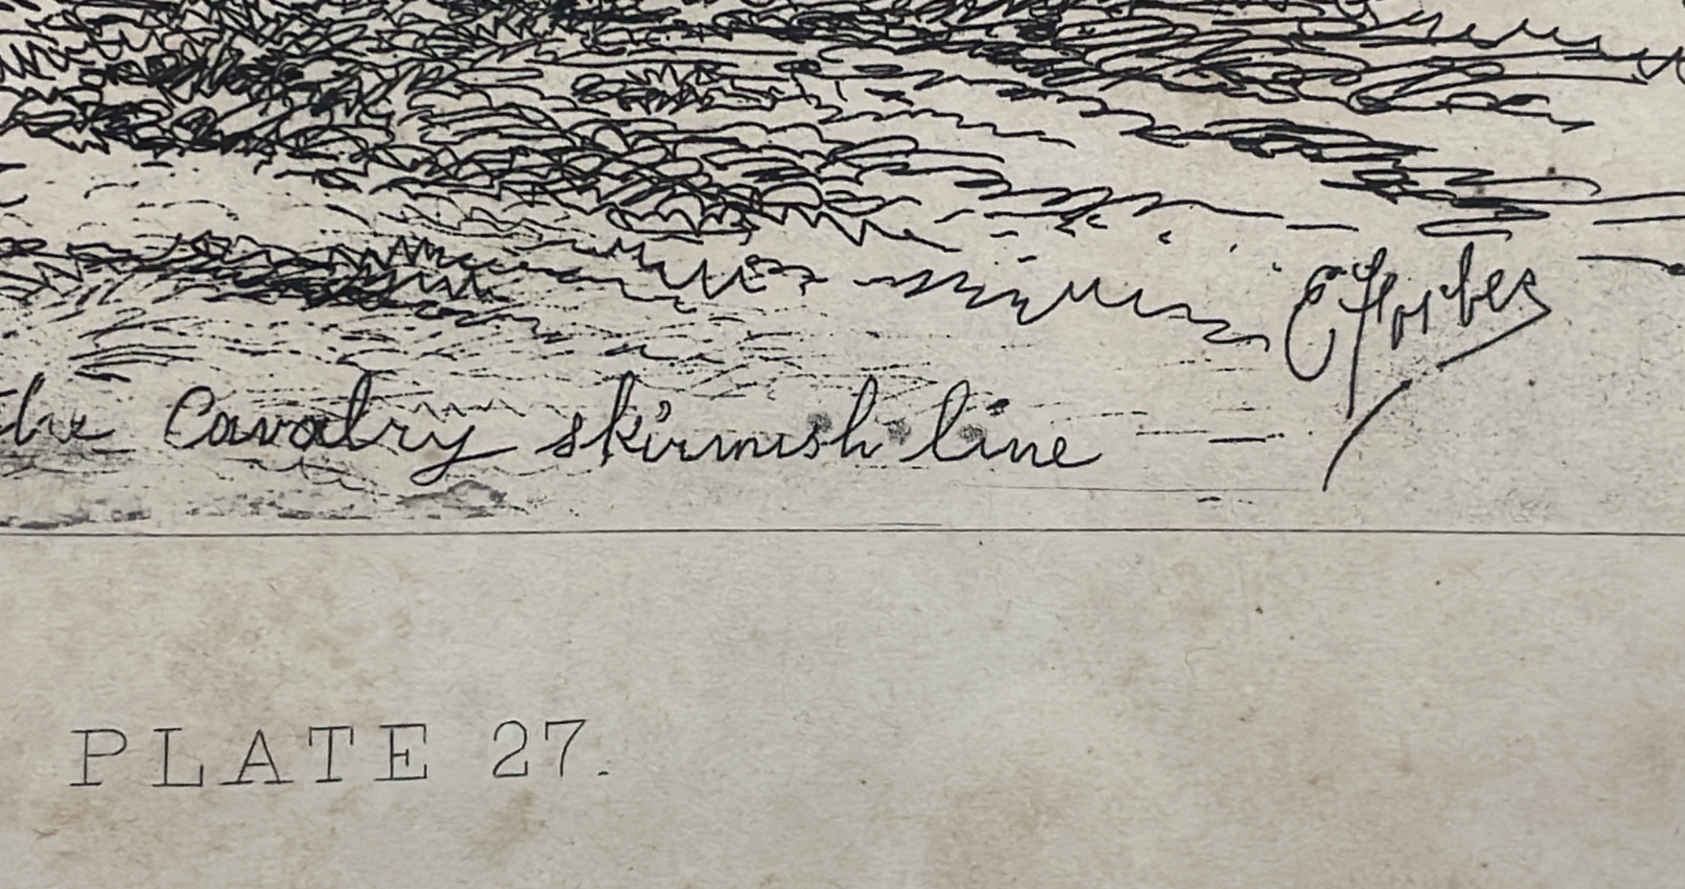 E Forbes
The Cavalry skirmish line
PLATE 27.